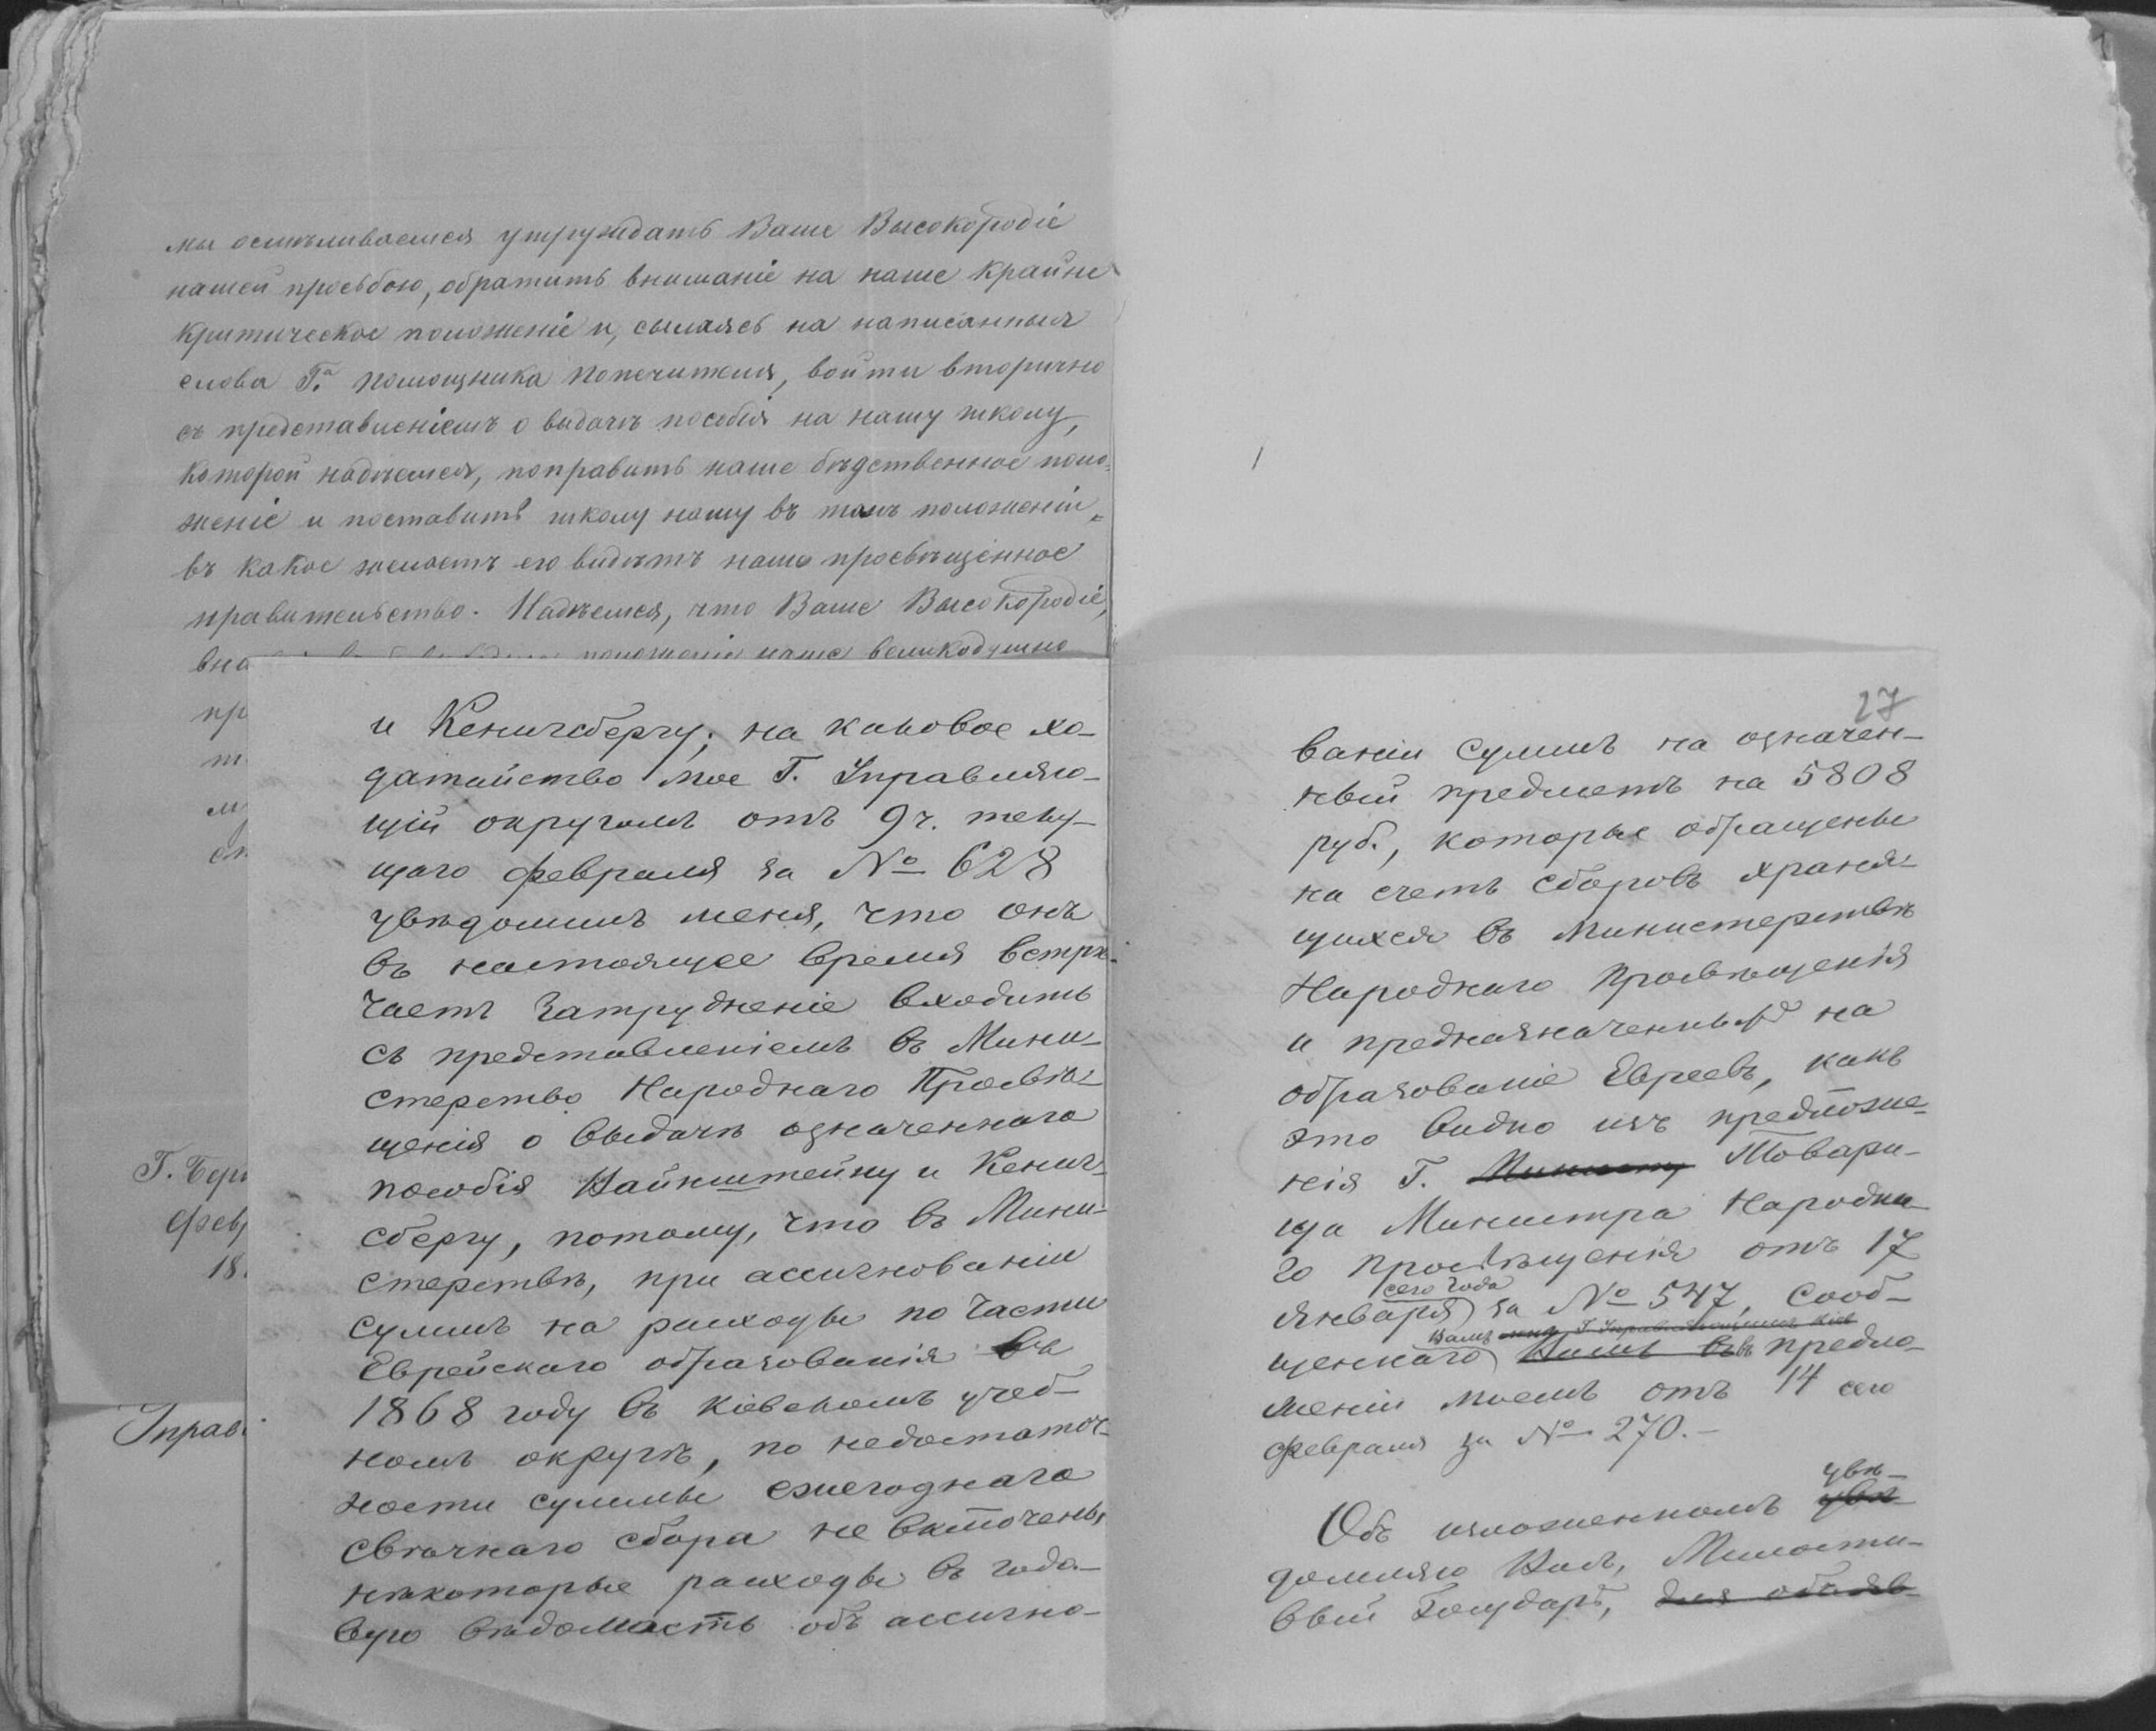 мы осмѣливаемся утруждать Ваше Высокородіе
нашей просьбою, обратить вниманіе на наше крайне
критическое положеніе и, сылаясь на написанныя
слова Г.а помощника попечителя, войти вторично
съ представленіемъ о выдачѣ пособія на нашу школу,
которой надѣемся, поправить наше бѣдственное поло-
женіе и поставить школу нашу въ томъ положеніи,
въ какое желаетъ его видѣть наше просвѣщенное
правительство. Надѣемся, что Ваше Высокородіе,
вна положеніе наше великодушно
пр
т
м
сп
Г. Бер
Фев
18
Управ
и Кенигсбергу; на каковое хо-
датайство мое Г. Управляю-
щій округомъ отъ 9 ч. теку-
щаго февраля за № 628
увѣдомилъ меня, что онъ
въ настоящее время встрѣ-
чаетъ затрудненіе входить
съ представленіемъ въ Мини-
стерство Народнаго Просвѣ-
щенія о выдачѣ означеннаго
пособія Вайнштейну и Кениг-
сбергу, потому, что въ Мини-
стерствѣ, при ассигнованіи
суммъ на расходы по части
Еврейскаго образованія въ
1868 году въ Кіевскомъ учеб-
номъ округѣ, по недостаточ-
ности суммы ежегоднаго
свѣчнаго сбора не включены
нѣкоторые расходы въ годо-
вую вѣдомость объ ассигно-
27
ваніи суммъ на означен-
ный предметъ на 5808
руб., которые обращены
на счетъ сборовъ храня-
щихся въ Министерствѣ
Народнаго Просвѣщенія
и предназначенныхъ на
образованіе Евреевъ, какъ
это видно изъ предложе-
нія Г. Товари-
ща Министра Народна-
го Просвѣщенія отъ 17
сего года
января за № 547, сооб-
Вамъ мнѣ Г Управляющимъ Кіев
щеннаго Вамъ въ въ предло-
женіи моемъ отъ 14 сего
февраля за № 270.-
увѣ-
Объ изложенномъ увѣ-
домляю Васъ, Милости-
вый Государь, для объяв-